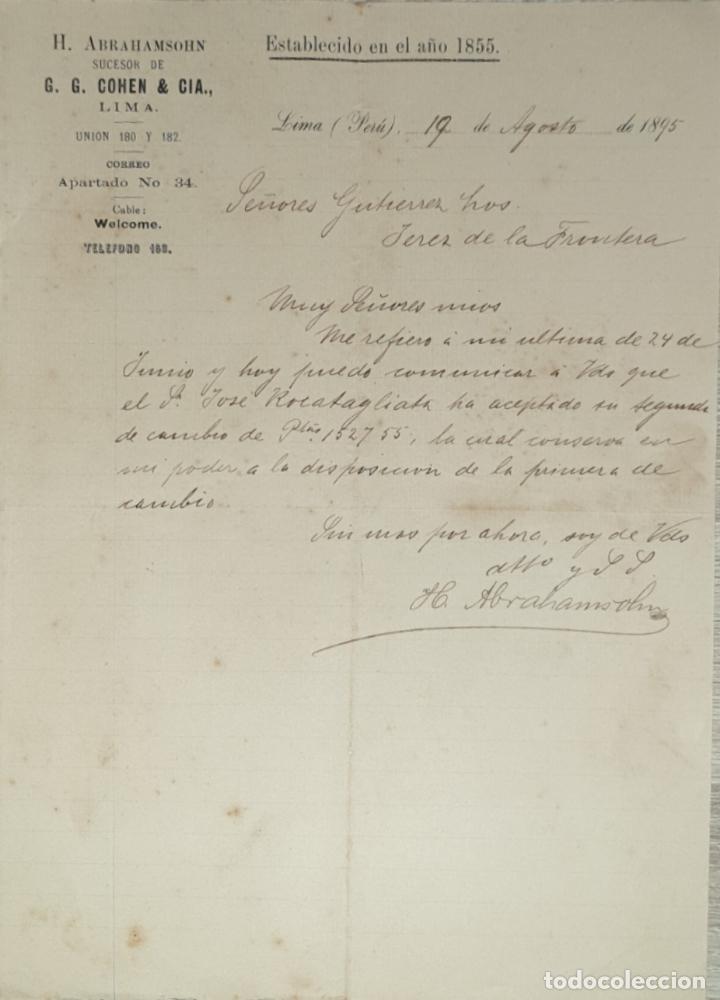 H. ABRAHAMSOHN
SUCESOR DE
G. G. COHEN & CIA.,
LIMA.
UNION 180 Y 182.
CORREO
Apartado No 34.
Cable:
Welcome.
TELEFONO 468.
Establecido en el año 1855.
Lima (Perú), 19 de Agosto de 1895
Señores Gutierrez hos.
Jerez de la Frontera
Muy Señores mios
Me refiero á mi ultima de 24 de
Junio y hoy puedo comunicar á Vds que
el Sr. José Rocatagliata ha aceptado su segunda
de cambio de Ptas 1527 55, la cual conserva en
mi poder a la disposicion de la primera de
cambio.
Sin mas por ahora, soy de Vds
atto y S S
H. Abrahamsohn
todocoleccion